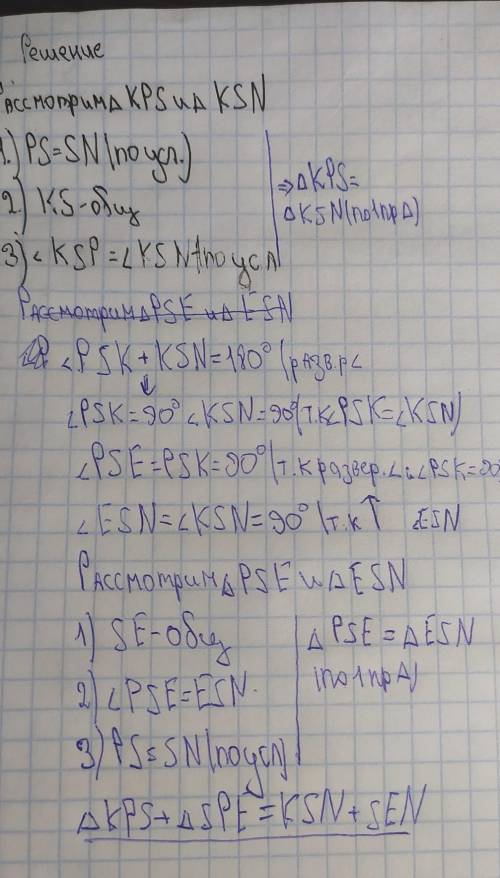 Решение
Рассмотрим △ KPS и △ KSN
1.) PS=SN (по усл.)
2) KS-общ
3) ∠KSP=∠KSN (по усл
⇒ △KPS=
△KSN (по 1 пр △)
Рассмотрим △PSE и △ESN
∠PSK + KSN=180° (разв.р∠
∠PSK=90° ∠KSN=90° (т.к ∠PSK=∠KSN)
∠PSE=PSK=90° (т.к развер.∠ и ∠PSK=90°
∠ESN=∠KSN=90° (т.к ↑ ∠ESN
Рассмотрим △PSE и △ESN
1) SE-общ
2) ∠PSE=ESN.
3) PS=SN (по усл)
△PSE=△ESN
(по 1 пр △)
△KPS+△SPE=KSN+SEN